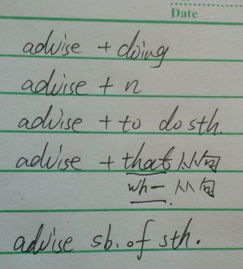 Date
advise + doing
advise + n
advise + to do sth.
advise + that 从句
wh- 从句
advise sb. of sth.